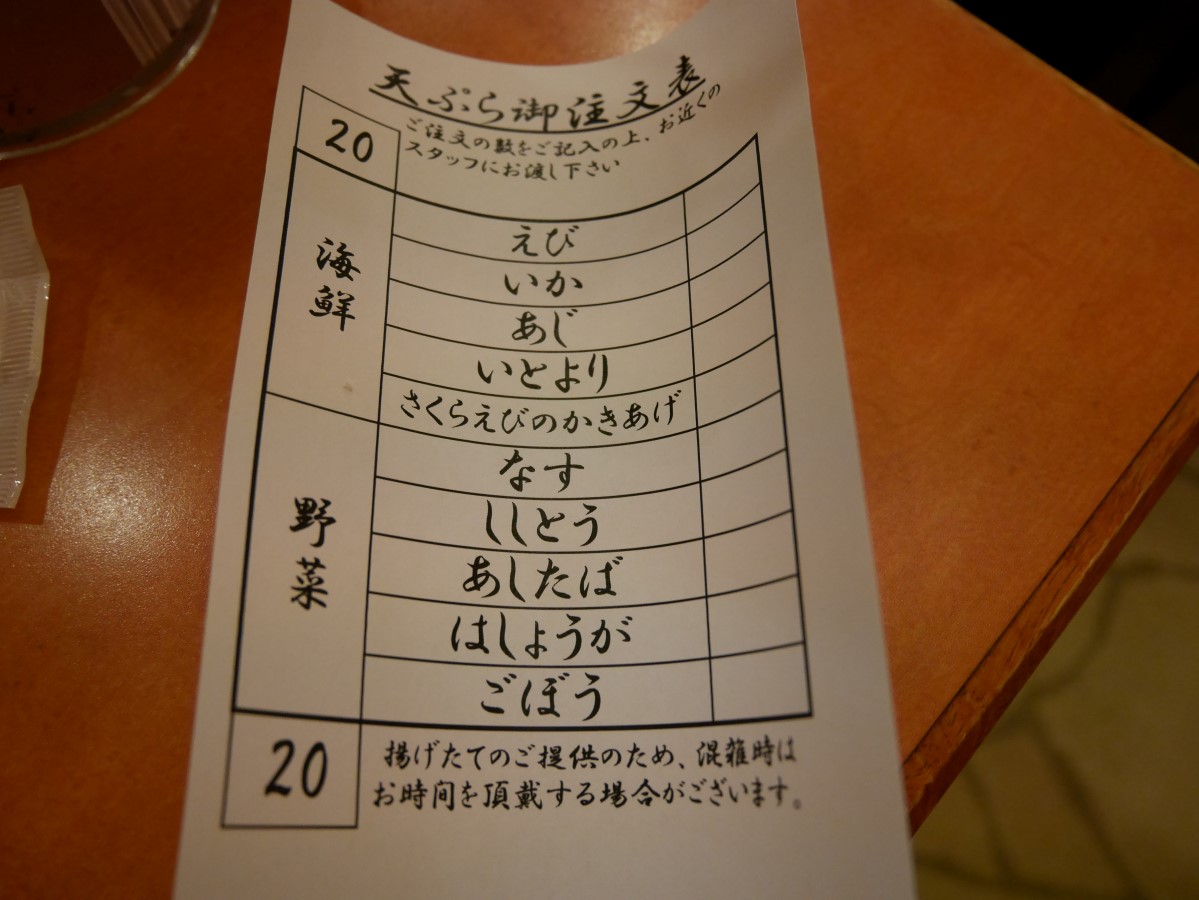 天ぷら御注文表
20
ご注文の数をご記入の上、お近くの
スタッフにお渡し下さい
海鮮
えび
いか
あじ
いとより
さくらえびのかきあげ
野菜
なす
ししとう
あしたば
はしょうが
ごぼう
20
揚げたてのご提供のため、混雑時は
お時間を頂戴する場合がございます。